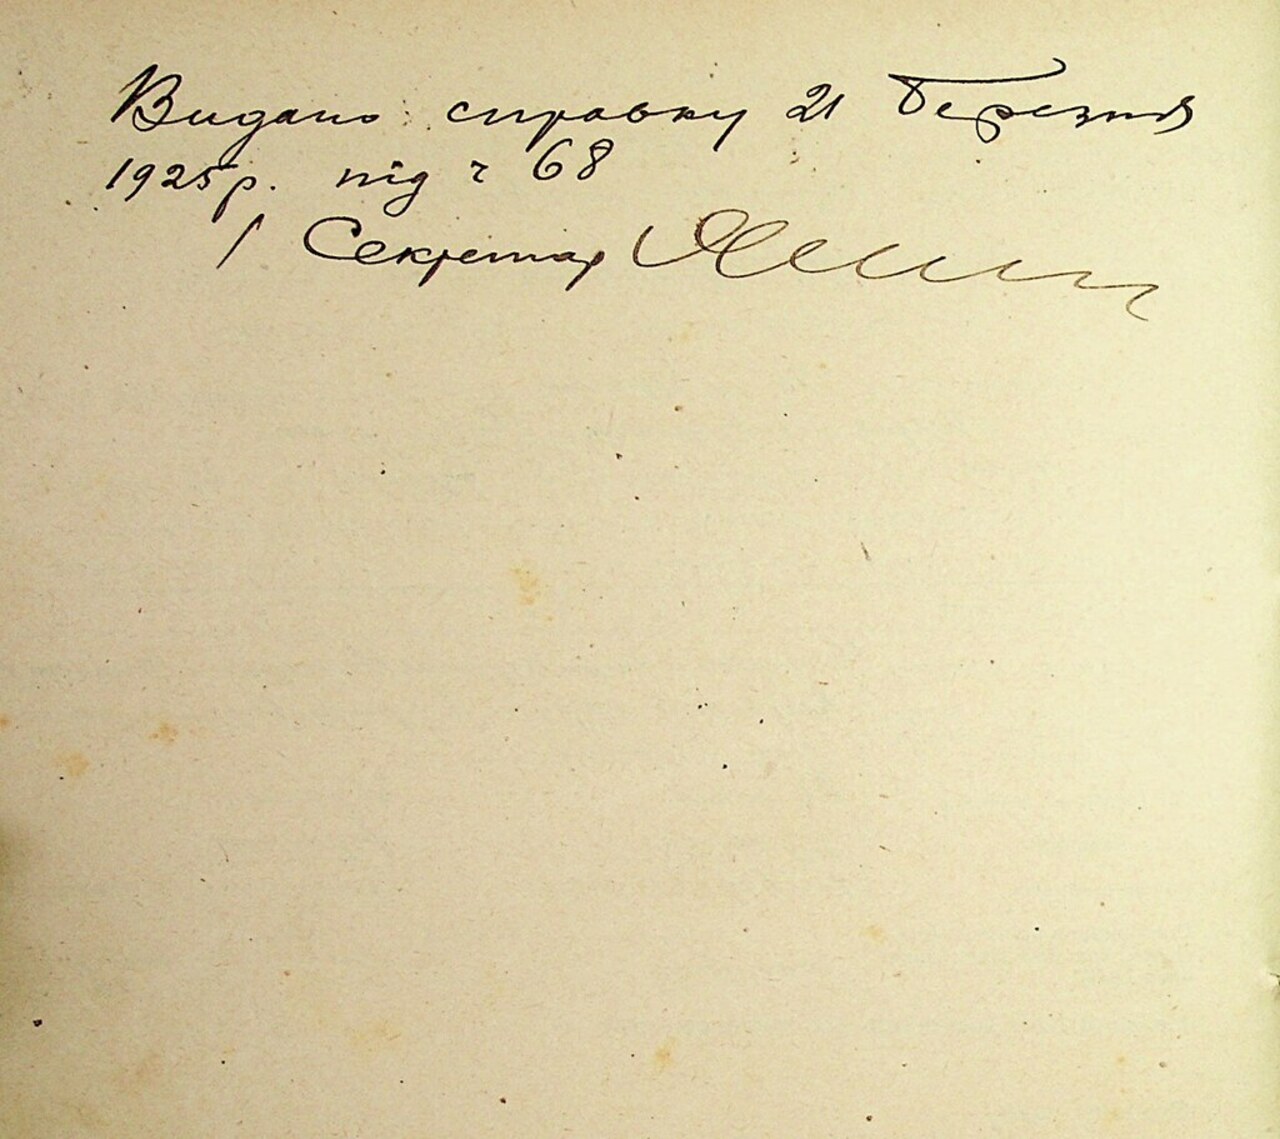 Видано справку 21 Березня
1925 р. під ч 68
/ Секретар